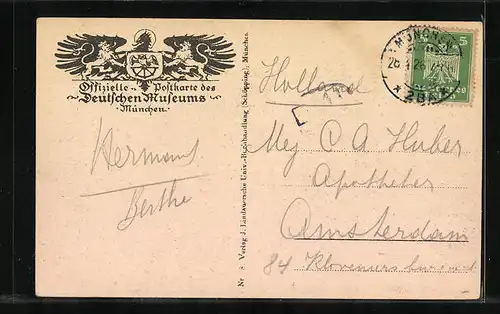 Offizielle Postkarte des
Deutschen Museums
München.
Hermann
Berthe
Nr. 8 Verlag J. Lindauersche Univ.-Buchhandlung (Schöpping), München.
MÜNCHEN
5
Holland
Mej C A Huber
Apotheker
Amsterdam
84 Kloveniers burgwal